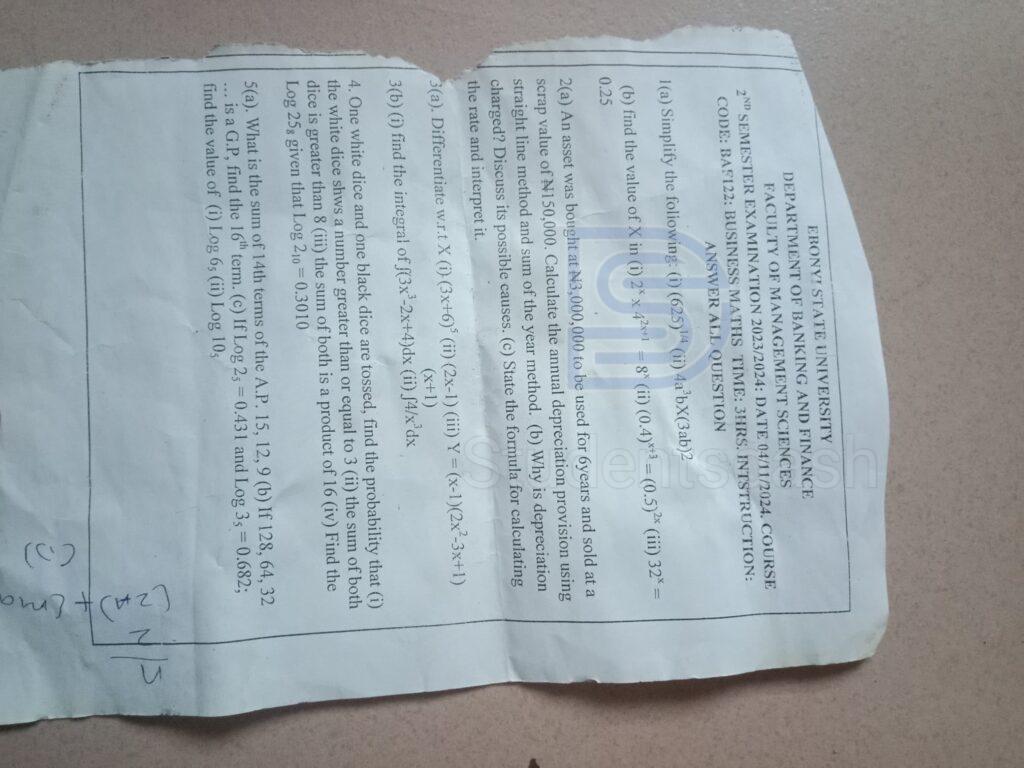 EBONYI STATE UNIVERSITY
DEPARTMENT OF BANKING AND FINANCE
FACULTY OF MANAGEMENT SCIENCES
2ND SEMESTER EXAMINATION 2023/2024: DATE 04/11/2024. COURSE
CODE: BAF122: BUSINESS MATHS TIME: 3HRS. INTSTRUCTION:
ANSWER ALL QUESTION
1(a) Simplify the following: (i) (625)^1/4 (ii) 4a³bX(3ab)2
(b) find the value of X in (i) 2ˣ x 4²ˣ⁺¹ = 8ˣ (ii) (0.4)ˣ⁺³ = (0.5)²ˣ (iii) 32ˣ =
0.25
2(a) An asset was bought at ₦3,000,000 to be used for 6years and sold at a
scrap value of ₦150,000. Calculate the annual depreciation provision using
straight line method and sum of the year method. (b) Why is depreciation
charged? Discuss its possible causes. (c) State the formula for calculating
the rate and interpret it.
3(a). Differentiate w.r.t X (i)(3x+6)⁵ (ii) (2x-1) (iii) Y = (x-1)(2x²-3x+1)
(x+1)
3(b) (i) find the integral of ∫(3x³-2x+4)dx (ii) ∫4/x³dx
4. One white dice and one black dice are tossed, find the probability that (i)
the white dice shws a number greater than or equal to 3 (ii) the sum of both
dice is greater than 8 (iii) the sum of both is a product of 16 (iv) Find the
Log 25₈ given that Log 2₁₀ = 0.3010
5(a). What is the sum of 14th terms of the A.P. 15, 12, 9 (b) If 128, 64, 32
... is a G.P, find the 16th term. (c) If Log 2₅ = 0.431 and Log 3₅ = 0.682;
find the value of (i) Log 6₅ (ii) Log 10₅